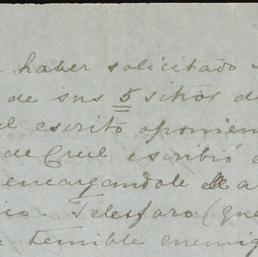 haber solicitado
de sus 5 sitios de
el escrito oponien
de Creel escribió
encargandole a
Telesforo (que
temible enemig